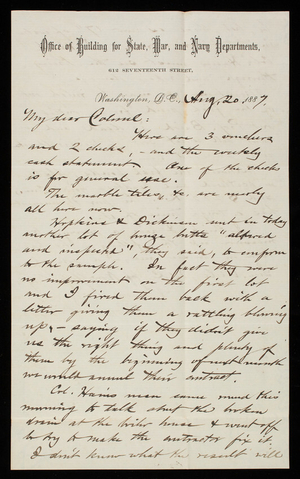 Office of Building for State, War, and Navy Departments,
612 SEVENTEENTH STREET,
Washington, D.C., Aug. 20 1887.
My dear Colonel:
Here are 3 vouchers
and 2 checks, and the weekly
cash statement. One of the checks
is for general use.
The marble tiles, &c. are nearly
all here now.
Hopkins & Dickinson sent in today
another lot of hinge butts "altered
and inspected", they said, to conform
to the sample. In fact they were
no improvement on the first lot
and I fired them back with a
letter giving them a rattling blowing
up, - saying if they didn't give
us the right thing and plenty of
them by the beginning of next month
we would annul their contract.
Col. Harris man came round this
morning to talk abt the broken
drain at the boiler house & went off
to try to make the contractor fix it.
I don't know what the result will